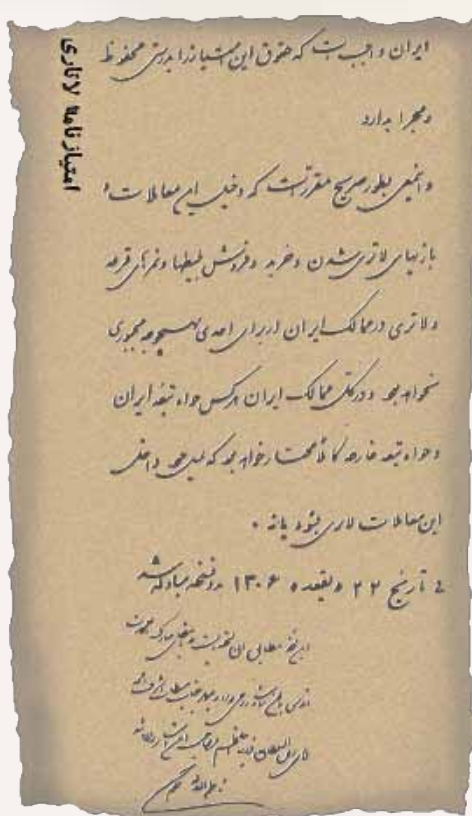 امتیازنامهٔ لاتاری
ایران واجب است که حقوق این امتیاز را بدرستی محفوظ
ومجرا بدارد
و این معنی بطور صریح مقرر است که دخیل این معاملات و
بازیهای لاتری شدن و خرید و فروش بلیطها و نمرهای قرعه
ولاتری در ممالک ایران از برای احدی بهیچوجه مجبوری
نخواهد بود و در کل ممالک ایران هرکس خواه تبعهٔ ایران
و خواه تبعه خارجه کاملاً مختار خواهد بود که میل خود داخل
این معاملات لاتری بشود یا نه .
فی تاریخ ۲۲ ذیقعده ۱۳۰۶ در دو نسخه مبادله شد
این نسخه مطابق